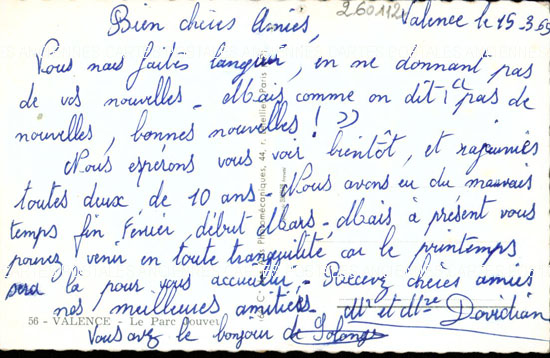 260112
Bien chères Amies, Valence le 15.3.65
Vous nous faites languir, en ne donnant pas
de vos nouvelles - Mais comme on dit : " pas de
nouvelles, bonnes nouvelles ! "
Nous espérons vous voir bientôt, et rajeunies
toutes deux de 10 ans - Nous avons eu du mauvais
temps fin Février, début Mars - Mais à présent vous
pouvez venir en toute tranquilité car le printemps
sera là pour vous accueillir - Recevez chères amies
nos meilleures amitiés - Mr et Mme Davidian
56 - VALENCE - Le Parc Jouvet
Vous avez le bonjour de Solange